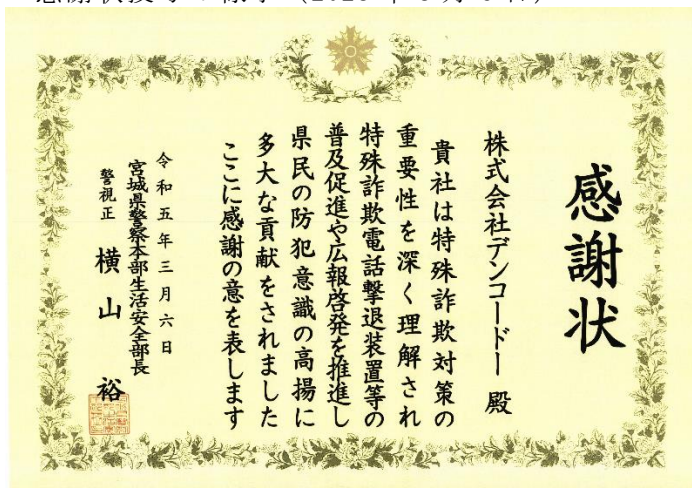 感謝状
株式会社デンコードー 殿
貴社は特殊詐欺対策の
重要性を深く理解され
特殊詐欺電話撃退装置等の
普及促進や広報啓発を推進し
県民の防犯意識の高揚に
多大な貢献をされました
ここに感謝の意を表します
令和五年三月六日
宮城県警察本部生活安全部長
警視正 横山 裕